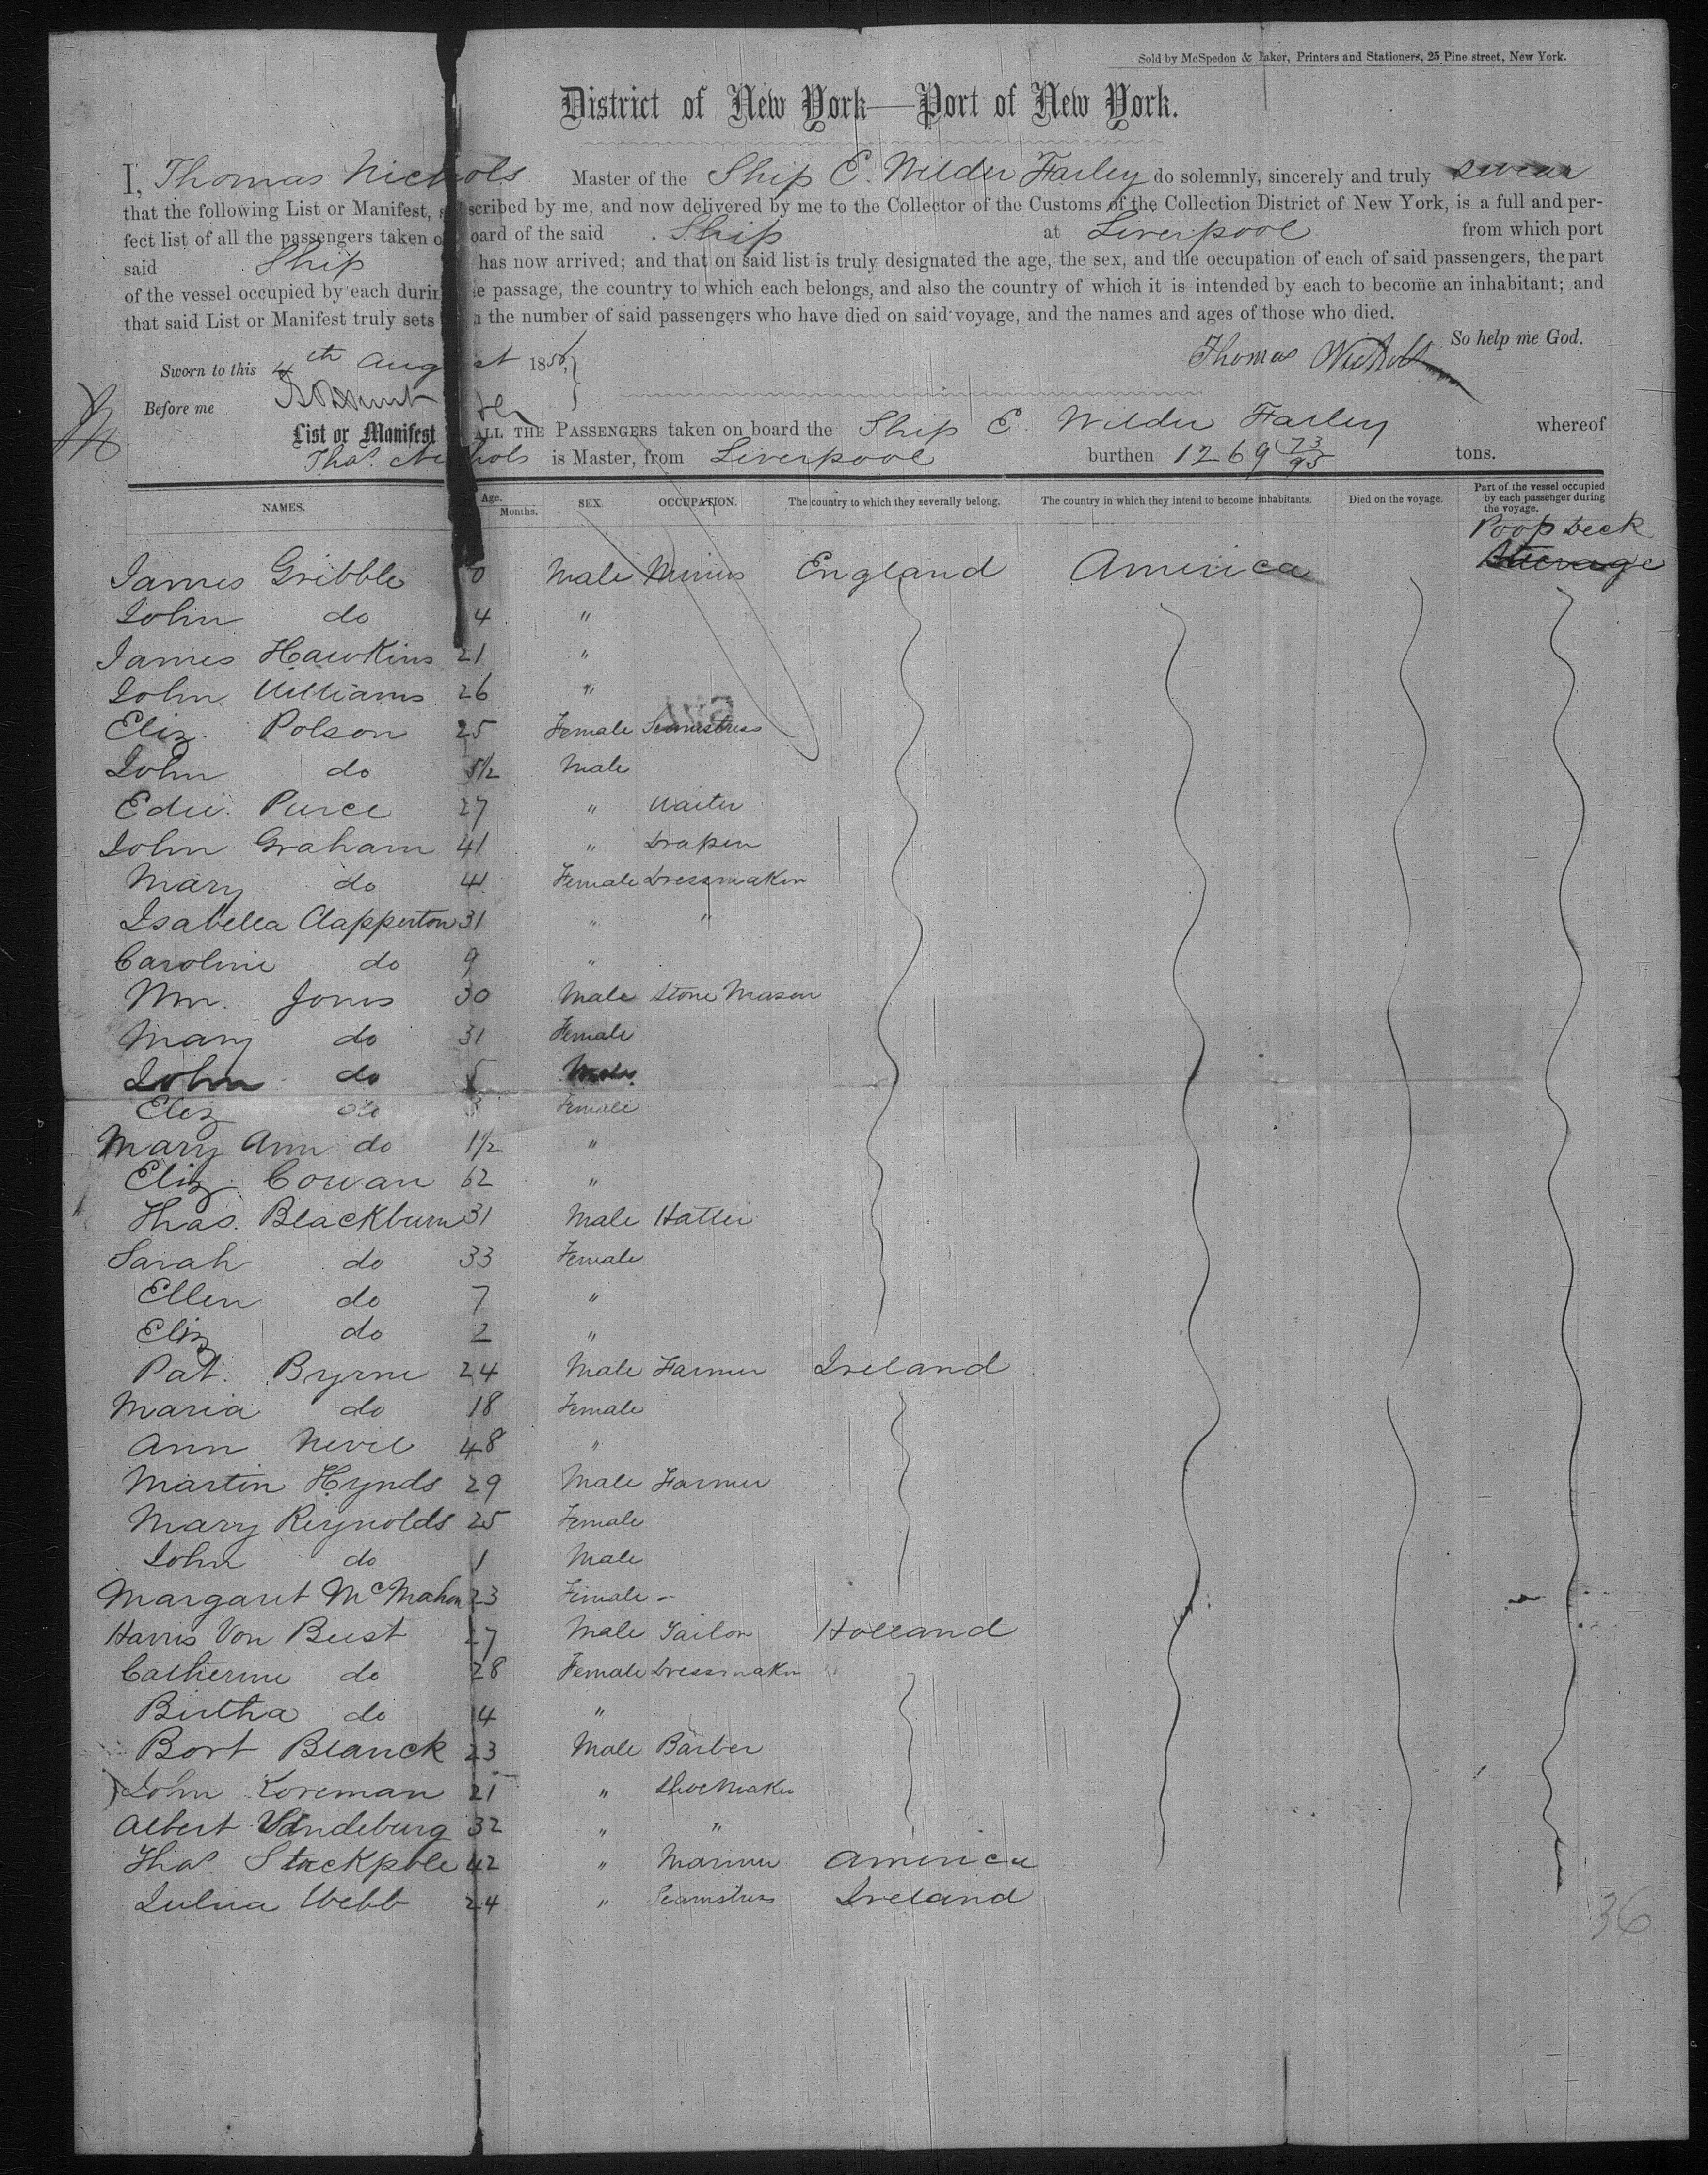 Sold by McSpedon & Baker, Printers and Stationers, 25 Pine street, New York.
District of New York—Port of New York.
I, Thomas Nichols Master of the Ship E. Wilder Farley do solemnly, sincerely and truly swear
that the following List or Manifest, scribed by me, and now delivered by me to the Collector of the Customs of the Collection District of New York, is a full and per-
fect list of all the passengers taken o oard of the said Ship at Liverpool from which port
said Ship has now arrived; and that on said list is truly designated the age, the sex, and the occupation of each of said passengers, the part
of the vessel occupied by each durin e passage, the country to which each belongs, and also the country of which it is intended by each to become an inhabitant; and
that said List or Manifest truly sets the number of said passengers who have died on said voyage, and the names and ages of those who died.
So help me God.
Sworn to this 4th Aug st 1856, Thomas Nichols
Before me
List or Manifest ALL THE PASSENGERS taken on board the Ship E. Wilder Farley whereof
Thos. Nichols is Master, from Liverpool burthen 1269 73/95 tons.
NAMES. Age. Months. SEX. OCCUPATION. The country to which they severally belong. The country in which they intend to become inhabitants. Died on the voyage. Part of the vessel occupied by each passenger during the voyage.
Poop Deck
James Gribble 0 Male England America Steerage
John do 4 "
James Hawkins 21 "
John Williams 26 "
Eliz. Polson 25 Female Seamstress
John do Male
Edw. Pierce 27 " Waiter
John Graham 41 " Draper
Mary do 41 Female Dressmaker
Isabella Clapperton 31 " "
Caroline do 9 "
Wm. Jones 30 Male Stone Mason
Mary do 31 Female
John do 5 Male
Eliz do 3 Female
Mary Ann do 1½ "
Eliz. Cowan 62 "
Thos. Blackburn 31 Male Hatter
Sarah do 33 Female
Ellen do 7 "
Eliz do 2 "
Pat. Byrne 24 Male Farmer Ireland
Maria do 18 Female
Ann Nevil 48 "
Martin Hynds 29 Male Farmer
Mary Reynolds 25 Female
John do 1 Male
Margaret McMahon 23 Female
Harris Von Beest 27 Male Tailor Holland
Catherine do 28 Female Dressmaker
Bertha do 14 "
Bort Blanck 23 Male Barber
John Koreman 21 " Shoemaker
Albert Vandeburg 32 " "
Thos. Stackpole 42 " Mariner America
Julia Webb 24 " Seamstress Ireland
36